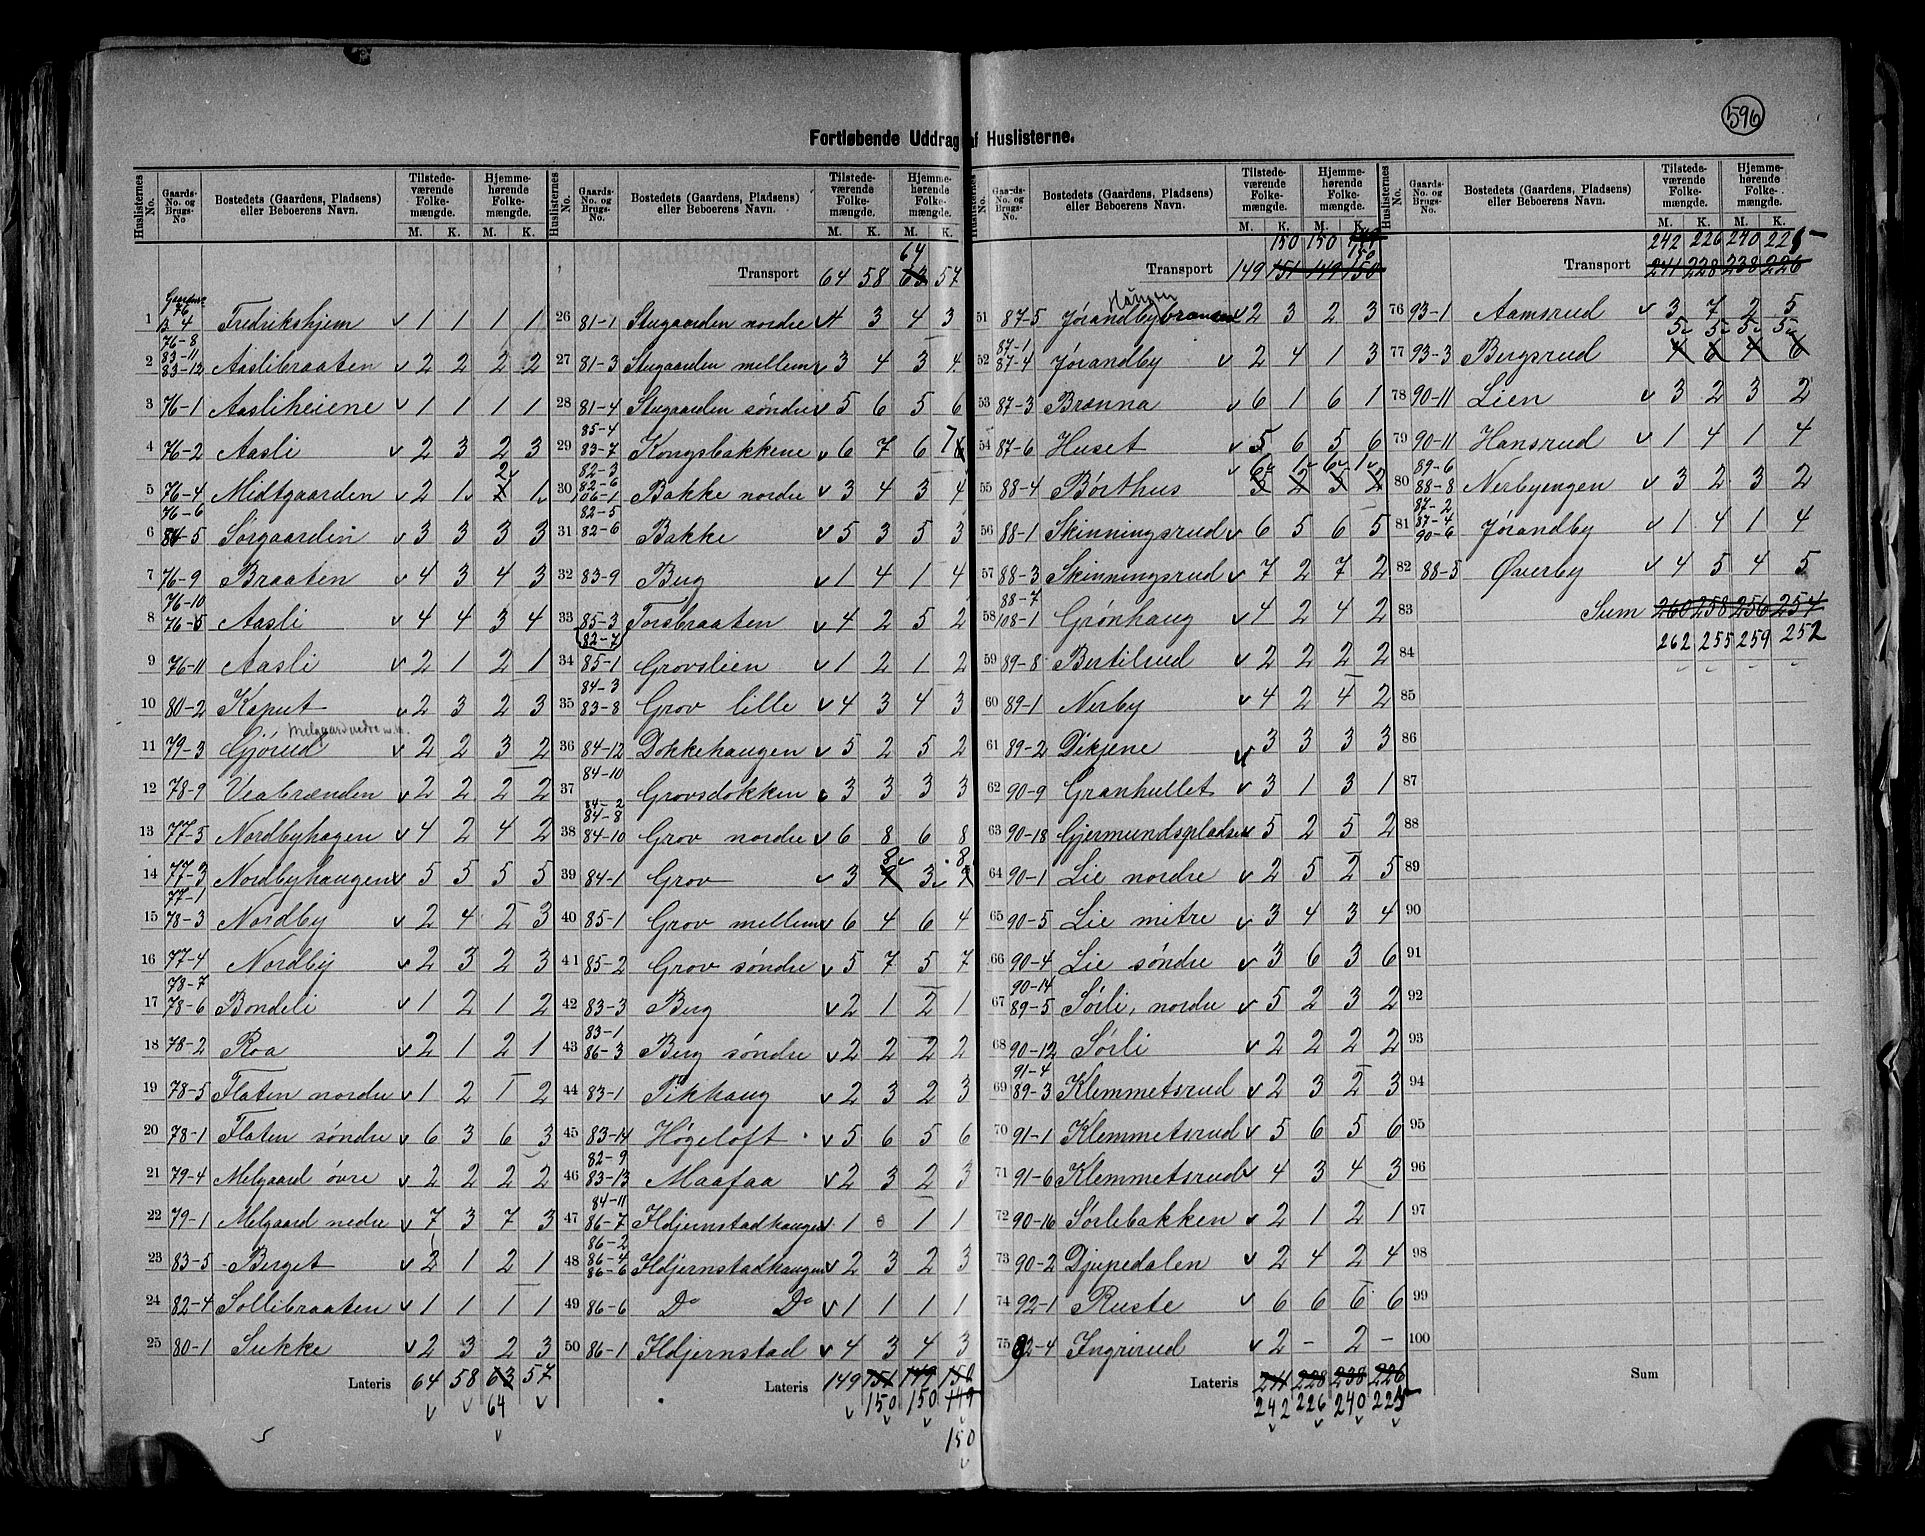 596
Fortløbende Uddrag af Huslisterne.
Huslisternes No. | Gaards-No. og Brugs-No | Bostedets (Gaardens, Pladsens) eller Beboerens Navn. | Tilstedeværende Folkemængde. M. K. | Hjemmehørende Folkemængde. M. K.
1 76 4 Fredrikshjem v 1 1 1 1
2 76-8 83-11 83-12 Aaslibraaten v 2 2 2 2
3 76-1 Aasliheiene v 1 1 1 1
4 76-2 Aasli v 2 3 2 3
5 76-4 Midtgaarden v 2 1 2 1
6 76-6 84-5 Sørgaarden v 3 3 3 3
7 76-9 Braaten v 4 3 4 3
8 76-10 76-5 Aasli v 4 4 3 4
9 76-11 Aasli v 2 1 2 1
10 80-2 Kaput v 2 3 2 3
11 79-3 Gjörud v 2 2 3 2
12 78-9 Veabrænden v 2 2 2 2
13 77-5 Nordbyhagen v 4 2 4 2
14 77-3 Nordbyhaugen v 5 5 5 5
15 77-1 78-3 Nordby v 2 4 2 3
16 77-4 Nordby v 2 3 2 3
17 78-7 78-6 Bondeli v 1 2 1 2
18 78-2 Roa v 2 1 2 1
19 78-5 Flaten nordre v 1 2 1 2
20 78-1 Flaten søndre v 6 3 6 3
21 79-4 Melgaard øvre v 2 2 2 2
22 79-1 Melgaard nedre v 7 3 7 3
23 83-5 Berget v 2 1 2 1
24 82-4 Sollibraaten v 1 1 1 1
25 80-1 Sukke v 2 3 2 3
Lateris 64 58 63 57
64
Huslisternes No. | Gaards-No. og Brugs-No. | Bostedets (Gaardens, Pladsens) eller Beboerens Navn. | Tilstedeværende Folkemængde. M. K. | Hjemmehørende Folkemængde. M. K.
64
Transport 64 58 63 57
26 81-1 Stugaarden nordre v 4 3 4 3
27 81-3 Stugaarden mellem v 3 4 3 4
28 81-4 Stugaarden søndre v 5 6 5 6
29 85-4 83-7 Kongsbakkene v 6 7 6 7
30 82-3 82-6 106-1 Bakke nordre v 3 4 3 4
31 82-5 82-6 Bakke v 5 3 5 3
32 83-9 Bug v 1 4 1 4
33 85-3 (82-7) Forsbraaten v 4 2 5 2
34 85-1 Grovslien v 1 2 1 2
35 84-3 83-8 Grov lille v 4 3 4 3
36 84-12 Dokkehaugen v 5 2 5 2
37 84-10 Grovsdokken v 3 3 3 3
38 84-2 84-8 84-10 Grov nordre v 6 8 6 8
39 84-1 Grov v 3 9 8 3 9 8
40 85-1 Grov mellem v 6 4 6 4
41 85-2 Grov søndre v 5 7 5 7
42 83-3 Berg v 2 1 2 1
43 83-1 86-3 Berg søndre v 2 2 2 2
44 83-1 Pikhaug v 2 3 2 3
45 83-14 Høgeloft v 5 6 5 6
46 82-9 83-13 Maafaa v 2 3 2 3
47 84-11 86-7 Hdjernstadhaugen v 1 0 1 1
48 86-2 86-4 86-6 Hdjernstadhaugen v 2 3 2 3
49 86-6 Do Do v 1 1 1 1
50 86-1 Hdjernstad v 4 3 4 3
Lateris 149 151 149 150
150 150 149
150
Huslisternes No. | Gaards-No. og Brugs-No. | Bostedets (Gaardens, Pladsens) eller Beboerens Navn. | Tilstedeværende Folkemængde. M. K. | Hjemmehørende Folkemængde. M. K.
150 150 149
150
Transport 149 151 149 150
51 87-5 Jørandby v 2 3 2 3
52 87-1 87-4 Jørandby v 2 4 1 3
53 87-3 Brønna v 6 1 6 1
54 87-6 Huset v 5 6 5 6
6 1 6 1
55 88-4 Børthus v 3 2 3 2
56 88-1 Skinningsrud v 6 5 6 5
57 88-3 Skinningsrud v 7 2 7 2
58 88-7 108-1 Grønhaug v 4 2 4 2
59 89-8 Bertilrud v 2 2 2 2
60 89-1 Nerby v 4 2 4 2
61 89-2 Dikjene v 3 3 3 3
62 90-9 Granhullet v 3 1 3 1
63 90-18 Gjermundspladsen v 5 2 5 2
64 90-1 Lie nordre v 2 5 2 5
65 90-5 Lie mitre v 3 4 3 4
66 90-4 Lie søndre v 3 6 3 6
67 90-14 89-5 Sørli, nordre v 5 2 3 2
68 90-12 Sørli v 2 2 2 2
69 91-4 89-3 Klemmetsrud v 2 3 2 3
70 91-1 Klemmetsrud v 5 6 5 6
71 91-6 Klemmetsrud v 4 3 4 3
72 90-16 Sørlebakken v 2 1 2 1
73 90-2 Djupedalen v 2 4 2 4
74 92-1 Ruste v 6 6 6 6
75 92-4 Ingrirud v 2 - 2 -
Lateris 241 228 238 226
242 226 240 225
Huslisternes No. | Gaards-No. og Brugs-No. | Bostedets (Gaardens, Pladsens) eller Beboerens Navn. | Tilstedeværende Folkemængde. M. K. | Hjemmehørende Folkemængde. M. K.
242 226 240 225
Transport 241 228 238 226
76 93-1 Aamsrud v 3 7 2 5
5 5 5 5
77 93-3 Bergsrud 4 6 4 6
78 90-11 Lien v 3 2 3 2
79 90-11 Hansrud v 1 4 1 4
80 89-6 88-8 Nerbyengen v 3 2 3 2
81 87-2 87-4 90-6 Jørandby v 1 4 1 4
82 88-5 Øverby v 4 5 4 5
83 Sum 260 258 256 254
262 255 259 252
84
85
86
87
88
89
90
91
92
93
94
95
96
97
98
99
100
Sum